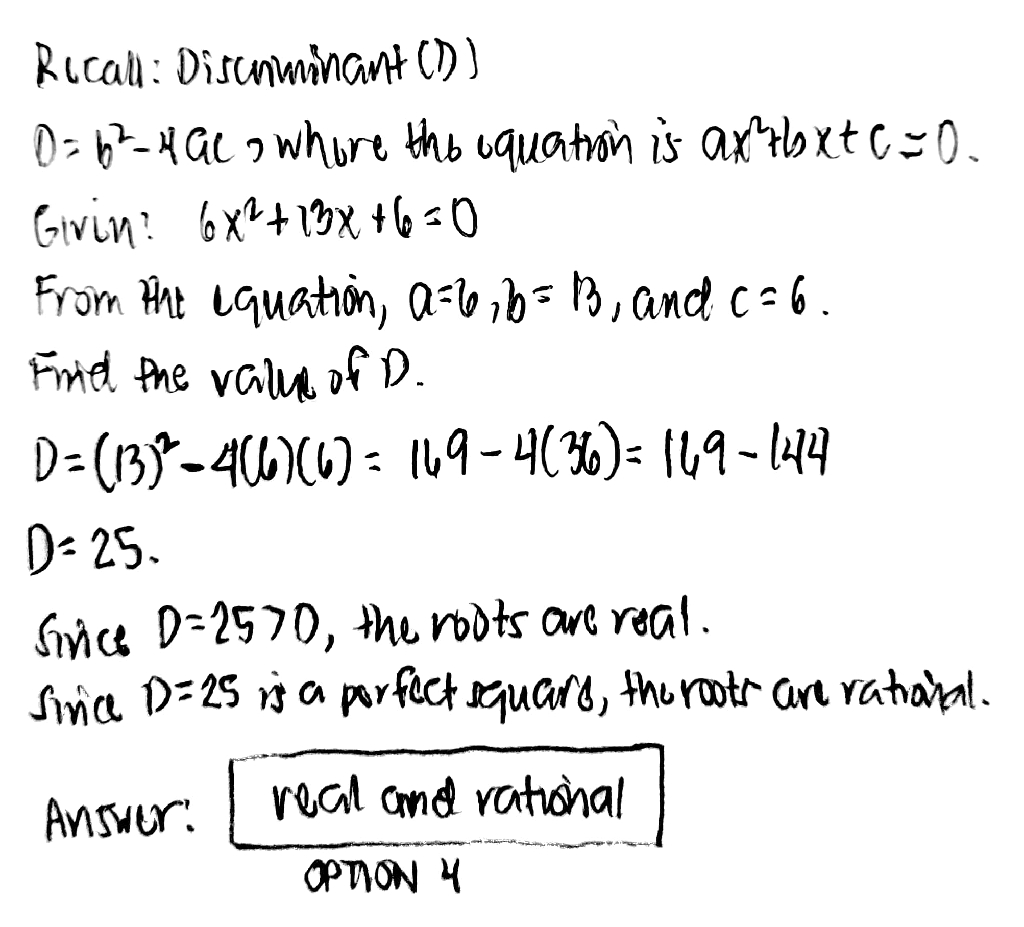 Recall: Discriminant (D)
D=b²-4ac, where the equation is ax²+bx+c=0.
Given: 6x²+13x+6=0
From the equation, a=6, b=13, and c=6.
Find the value of D.
D=(13)²-4(6)(6)=169-4(36)=169-144
D=25.
Since D=25>0, the roots are real.
Since D=25 is a perfect square, the roots are rational.
Answer: real and rational
OPTION 4